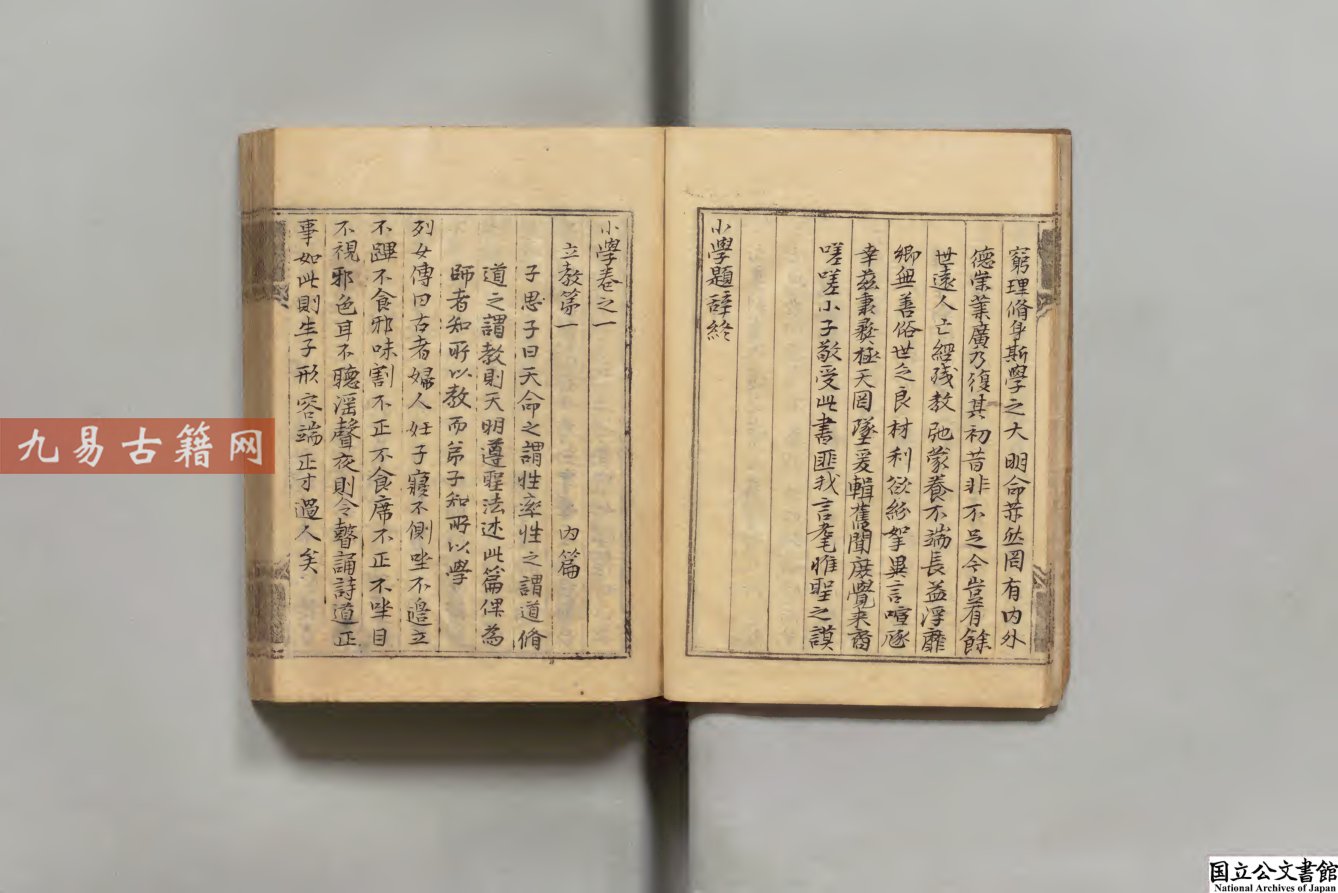 窮理脩身斯學之大明命赫然罔有内外
德崇業廣乃復其初昔非不足今豈有餘
世遠人亡經殘教弛蒙養不端長益浮靡
鄉無善俗世乏良材利欲紛挐異言喧豗
幸玆秉彝極天罔墜爰輯舊聞庶覺来裔
嗟嗟小子敬受此書匪我言耄惟聖之謨
小學題辭終
小學卷之一
立教第一 内篇
子思子曰天命之謂性率性之謂道脩
道之謂教則天明遵聖法述此篇俾為
師者知所以教而弟子知所以學
列女傳曰古者婦人妊子寢不側坐不邉立
不蹕不食邪味割不正不食席不正不坐目
不視邪色耳不聽淫聲夜則令瞽誦詩道正
事如此則生子形容端正才過人矣
九易古籍网
国立公文書館
National Archives of Japan